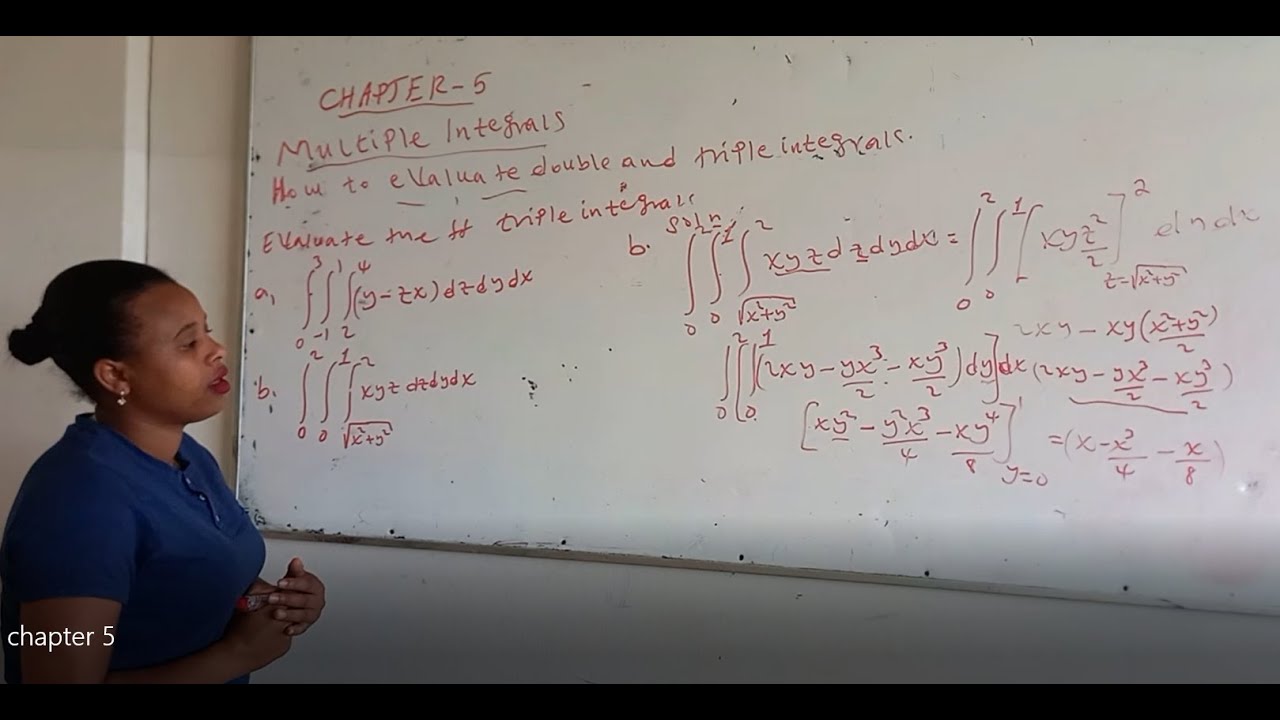 CHAPTER-5
Multiple Integrals
How to evaluate double and triple integrals.
Evaluate the ff triple integrals
a, ∫₀³ ∫₋₁¹ ∫₂⁴ (y-zx) dz dy dx
b. ∫₀² ∫₀¹ ∫_{√(x²+y²)}² xyz dz dy dx
Soln:
b. ∫₀² ∫₀¹ ∫_{√(x²+y²)}² xyz dz dy dx = ∫₀² ∫₀¹ [xy z²/2]²_{z=√(x²+y²)} dn dx
2xy - xy(x²+y²)/2
∫₀² [∫₀¹ (2xy - yx³/2 - xy³/2) dy] dx (2xy - yx³/2 - xy³/2)
[xy² - y²x³/4 - xy⁴/8]¹_{y=0} = (x - x³/4 - x/8)
chapter 5